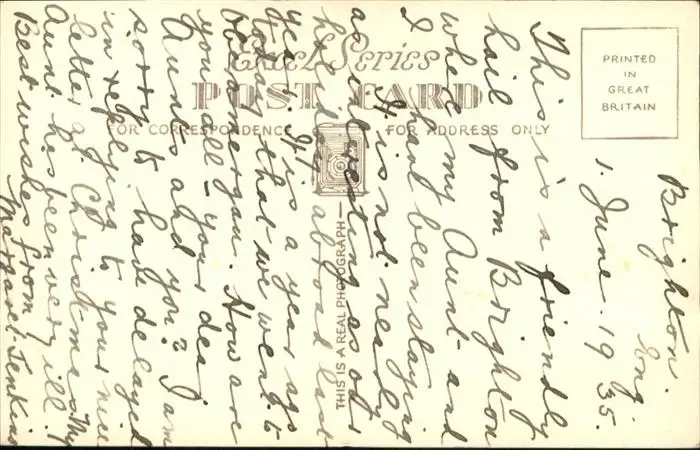 Excel Series
POST CARD
FOR CORRESPONDENCE
FOR ADDRESS ONLY
PRINTED
IN
GREAT
BRITAIN
THIS IS A REAL PHOTOGRAPH
Brighton.
Eng.
1. June. 1935.
This is a friendly
hail from Brighton
where my Aunt and
I have been staying
It is not nearly
as interesting as our
holiday abroad last
year. It is a year ago
today that we went to
How are
you all - your dear
Aunts and you? I am
sorry to have delayed
in replying to your nice
letter at Christmas. My
Aunt has been very ill!
Best wishes from
Margaret Jenkins